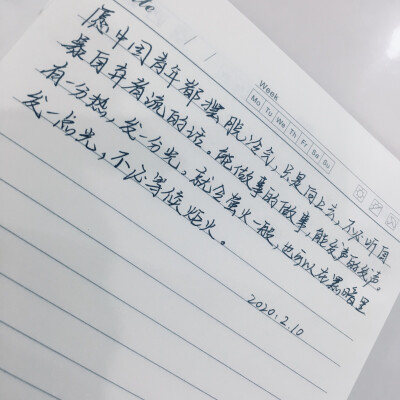 Date / /
Week
Mo Tu We Th Fr Sa Su
愿中国青年都摆脱冷气，只是向上走，不必听自
暴自弃者流的话。能做事的做事，能发声的发声。
有一分热，发一分光。就令萤火一般，也可以在黑暗里
发一点光，不必等候炬火。
2020.2.10